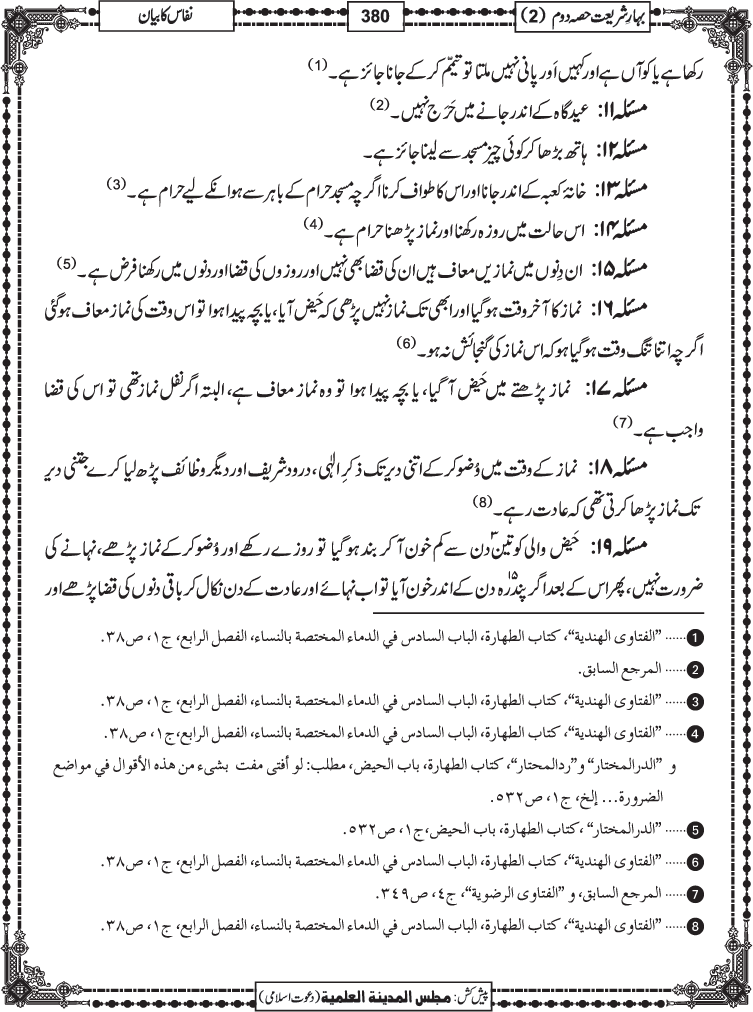 بہارِ شریعت حصہ دوم (2)
380
نفاس کا بیان
رکھا ہے یا کوآں ہے اور کہیں اَور پانی نہیں ملتا تو تیمّم کرکے جانا جائز ہے۔ (1)
مسئلہ ۱۱: عیدگاہ کے اندر جانے میں حَرَج نہیں۔ (2)
مسئلہ ۱۲: ہاتھ بڑھا کر کوئی چیز مسجد سے لینا جائز ہے۔
مسئلہ ۱۳: خانۂ کعبہ کے اندر جانا اور اس کا طواف کرنا اگرچہ مسجد حرام کے باہر سے ہو انکے لیے حرام ہے۔ (3)
مسئلہ ۱۴: اس حالت میں روزہ رکھنا اور نماز پڑھنا حرام ہے۔ (4)
مسئلہ ۱۵: ان دِنوں میں نمازیں معاف ہیں ان کی قضا بھی نہیں اور روزوں کی قضا اور دنوں میں رکھنا فرض ہے۔ (5)
مسئلہ ۱۶: نماز کا آخر وقت ہو گیا اور ابھی تک نماز نہیں پڑھی کہ حَیض آیا، یا بچہ پیدا ہوا تو اس وقت کی نماز معاف ہو گئی
اگرچہ اتنا تنگ وقت ہو گیا ہو کہ اس نماز کی گنجائش نہ ہو۔ (6)
مسئلہ ۱۷: نماز پڑھتے میں حَیض آ گیا، یا بچہ پیدا ہوا تو وہ نماز معاف ہے، البتہ اگر نفل نماز تھی تو اس کی قضا
واجب ہے۔ (7)
مسئلہ ۱۸: نماز کے وقت میں وُضو کر کے اتنی دیر تک ذکرِ الٰہی، درود شریف اور دیگر وظائف پڑھ لیا کرے جتنی دیر
تک نماز پڑھا کرتی تھی کہ عادت رہے۔ (8)
مسئلہ ۱۹: حَیض والی کو تین۳ دن سے کم خون آ کر بند ہو گیا تو روزے رکھے اور وُضو کر کے نماز پڑھے، نہانے کی
ضرورت نہیں، پھر اس کے بعد اگر پندرہ۱۵ دن کے اندر خون آیا تو اب نہائے اور عادت کے دن نکال کر باقی دنوں کی قضا پڑھے اور
1 ...... ”الفتاوی الھندیة“، کتاب الطھارة، الباب السادس في الدماء المختصة بالنساء، الفصل الرابع، ج۱، ص۳۸.
2 ...... المرجع السابق.
3 ...... ”الفتاوی الھندیة“، کتاب الطھارة، الباب السادس في الدماء المختصة بالنساء، الفصل الرابع، ج۱، ص۳۸.
4 ...... ”الفتاوی الھندیة“، کتاب الطھارة، الباب السادس في الدماء المختصة بالنساء، الفصل الرابع، ج۱، ص۳۸.
و ”الدرالمختار“ و”ردالمحتار“، کتاب الطھارة، باب الحیض، مطلب: لو أفتی مفت بشیء من ھذہ الأقوال في مواضع
الضرورة... إلخ، ج۱، ص۵۳۲.
5 ...... ”الدرالمختار“ ،کتاب الطھارة، باب الحیض،ج۱، ص۵۳۲.
6 ...... ”الفتاوی الھندیة“، کتاب الطھارة، الباب السادس في الدماء المختصة بالنساء، الفصل الرابع، ج۱، ص۳۸.
7 ...... المرجع السابق، و ”الفتاوی الرضویة“، ج٤، ص۳٤۹.
8 ...... ”الفتاوی الھندیة“، کتاب الطھارة، الباب السادس في الدماء المختصة بالنساء، الفصل الرابع، ج۱، ص۳۸.
پیش کش: مجلس المدینة العلمیة (دعوت اسلامی)